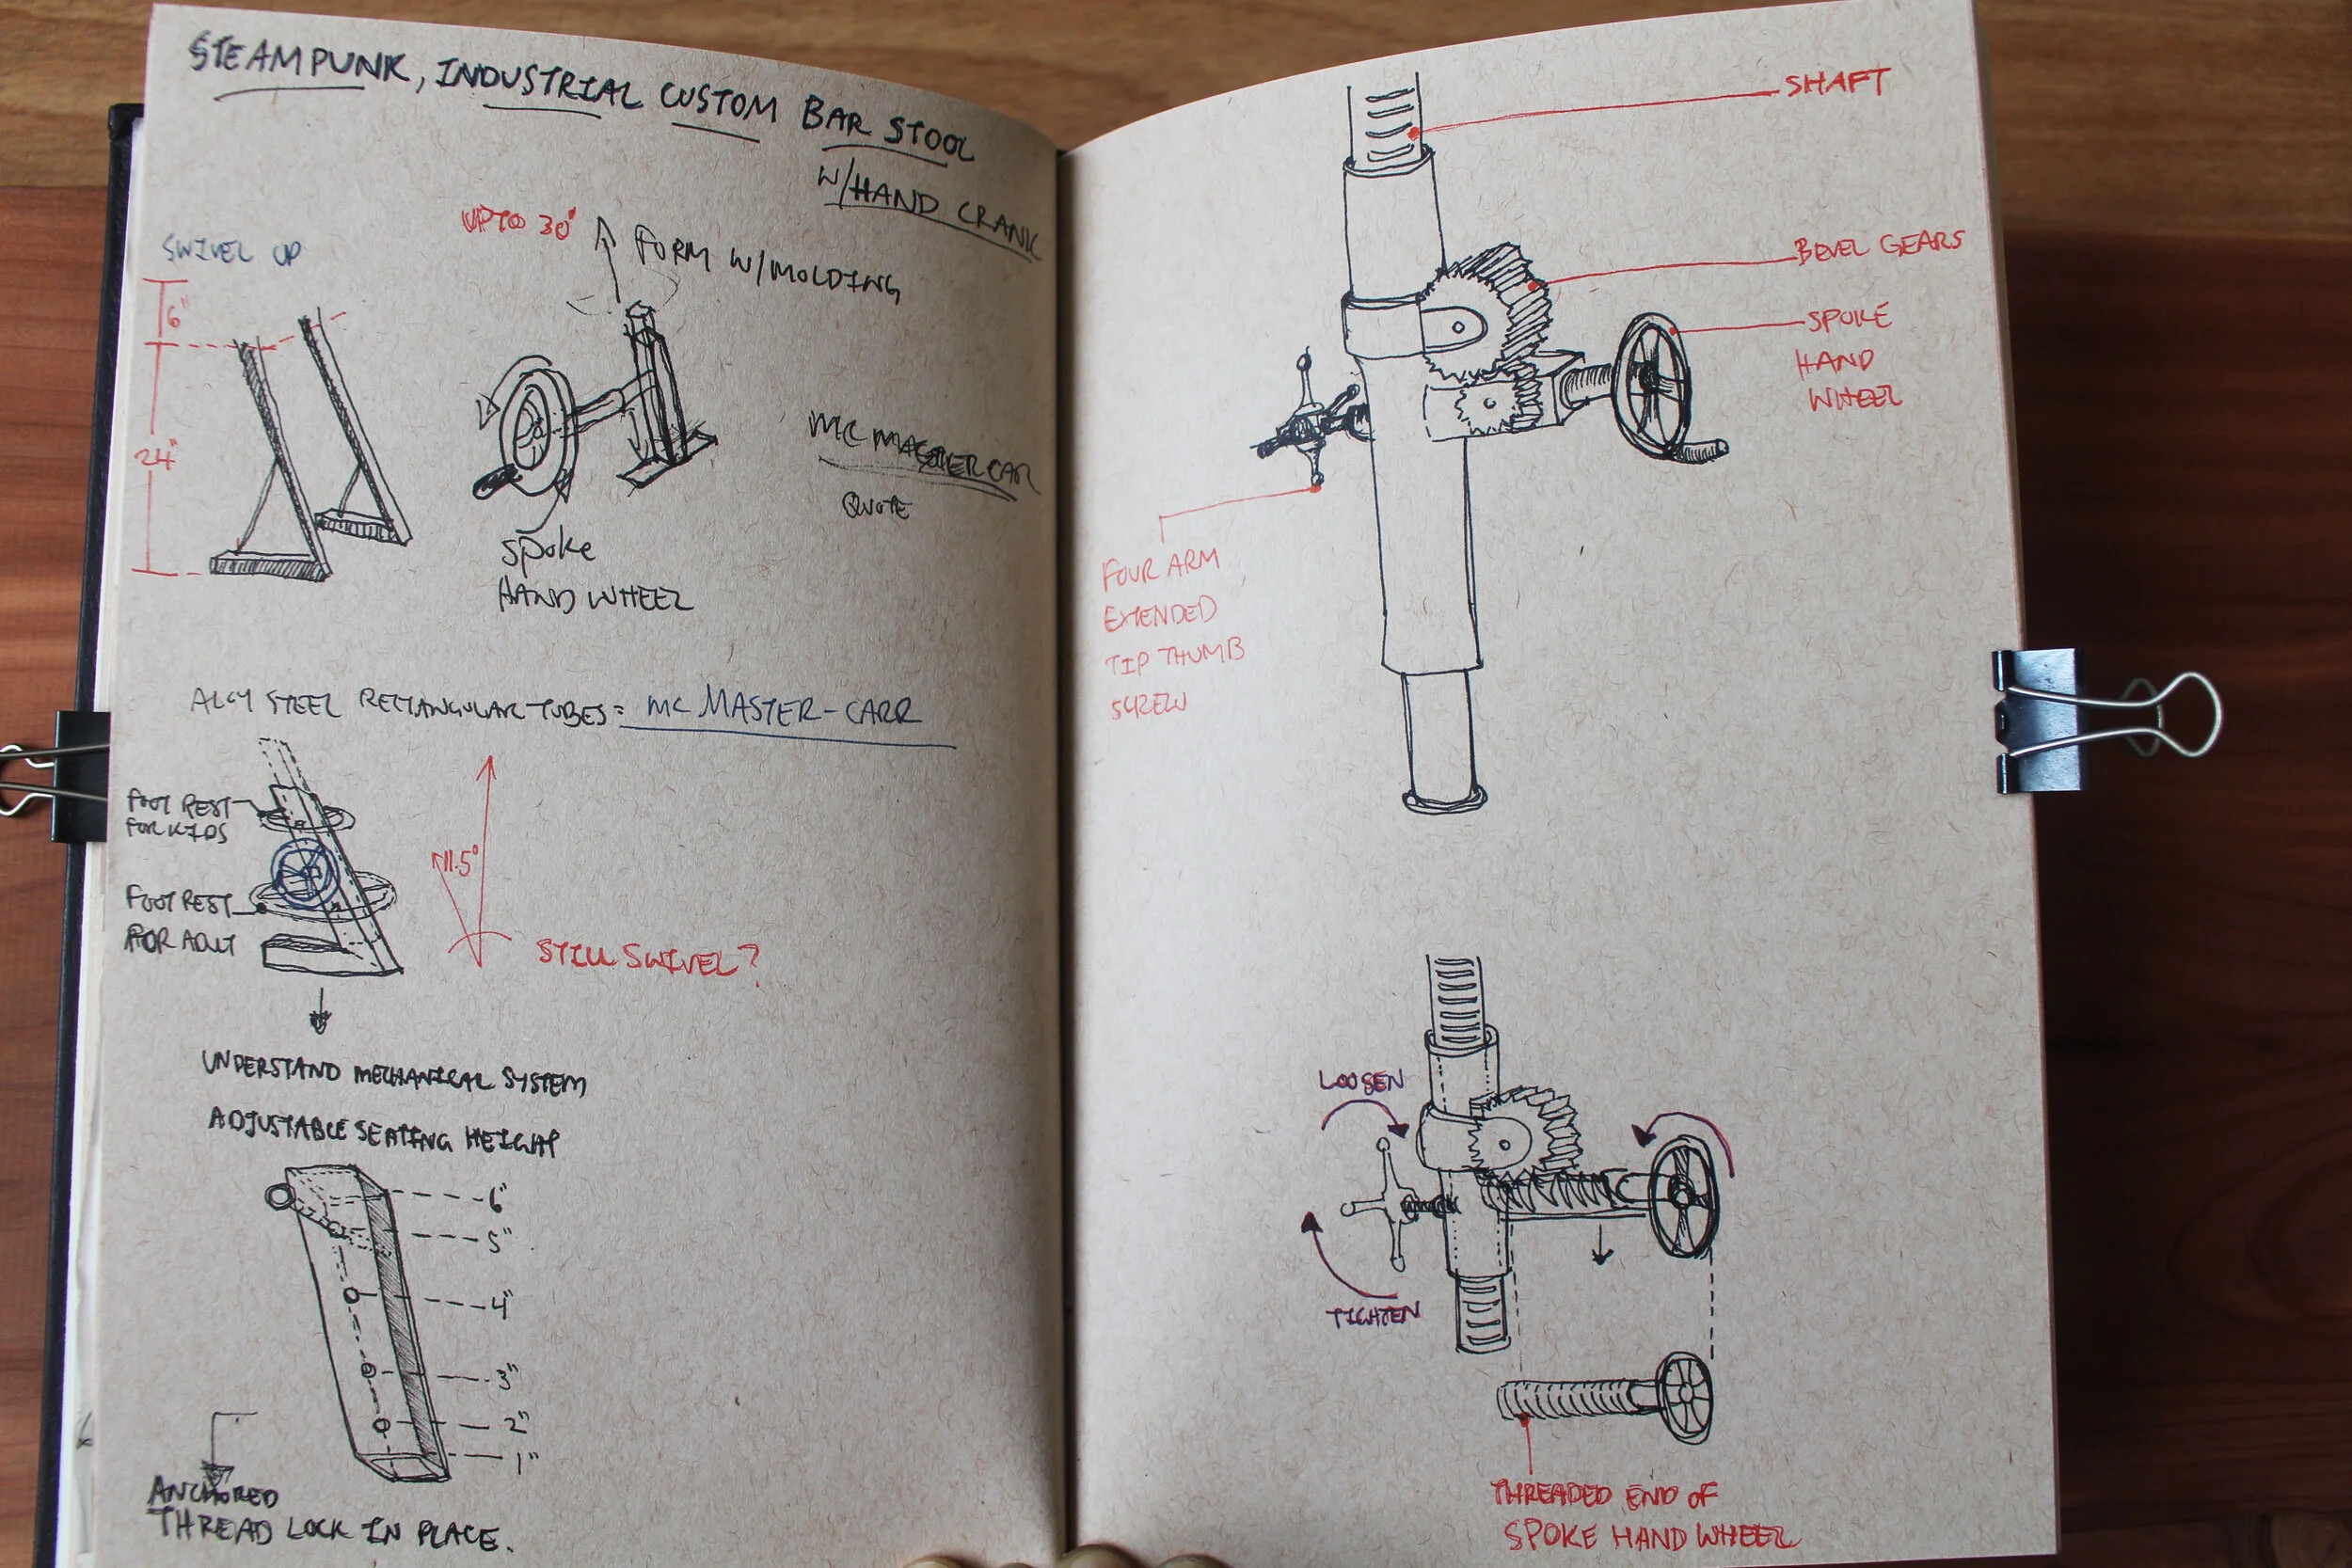 STEAMPUNK, INDUSTRIAL CUSTOM BAR STOOL
W/HAND CRANK
UP TO 30"
FORM W/MOLDING
SWIVEL UP
6"
24"
MCMASTER CAR
QUOTE
Spoke
HAND WHEEL
ALOY STEEL RECTANGULAR TUBES = MC MASTER-CARR
FOOT REST
FOR KIDS
FOOT REST
FOR ADULT
11.5°
STILL SWIVEL?
UNDERSTAND MECHANICAL SYSTEM
ADJUSTABLE SEATING HEIGHT
6"
5"
4"
3"
2"
1"
ANCHORED
THREAD LOCK IN PLACE.
SHAFT
BEVEL GEARS
SPOKE
HAND
WHEEL
FOUR ARM
EXTENDED
TIP THUMB
SCREW
LOOSEN
TIGHTEN
THREADED END OF
SPOKE HAND WHEEL